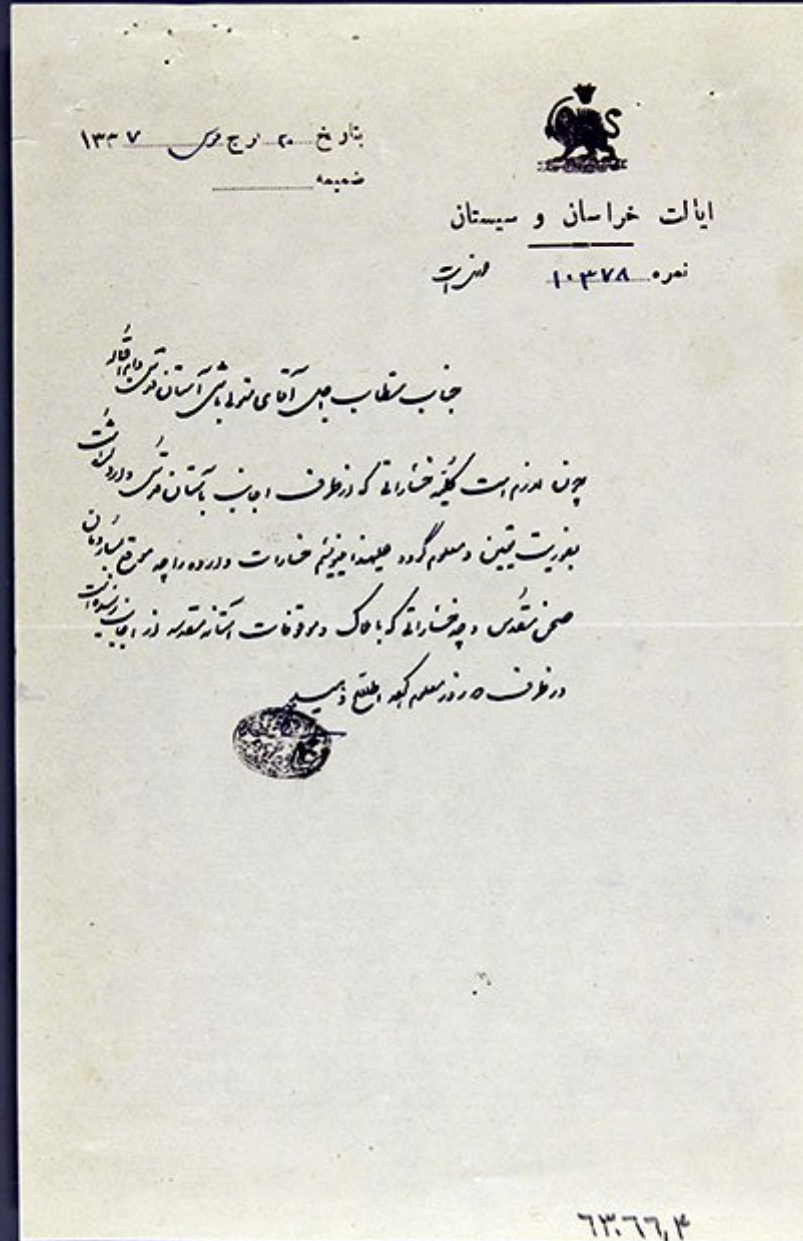 بتاریخ ۲۰ برج قوس ۱۳۳۷
ضمیمه
ایالت خراسان و سیستان
نمره ۱۰۳۷۸
جناب مستطاب اجل آقای متولی باشی آستان قدس دام اقباله
چون لازم است کلیه خساراتی که از طرف اجانب بآستان قدس وارد شده است
بفوریت تعیین و معلوم گردد علیهذا خسارات وارده را چه
صحن مقدس و چه خساراتی که باملاک و موقوفات آستانه مقدسه از اجانب
در ظرف ۵ روز معلوم کرده اطلاع دهید
٦٣٠٦٦,۴